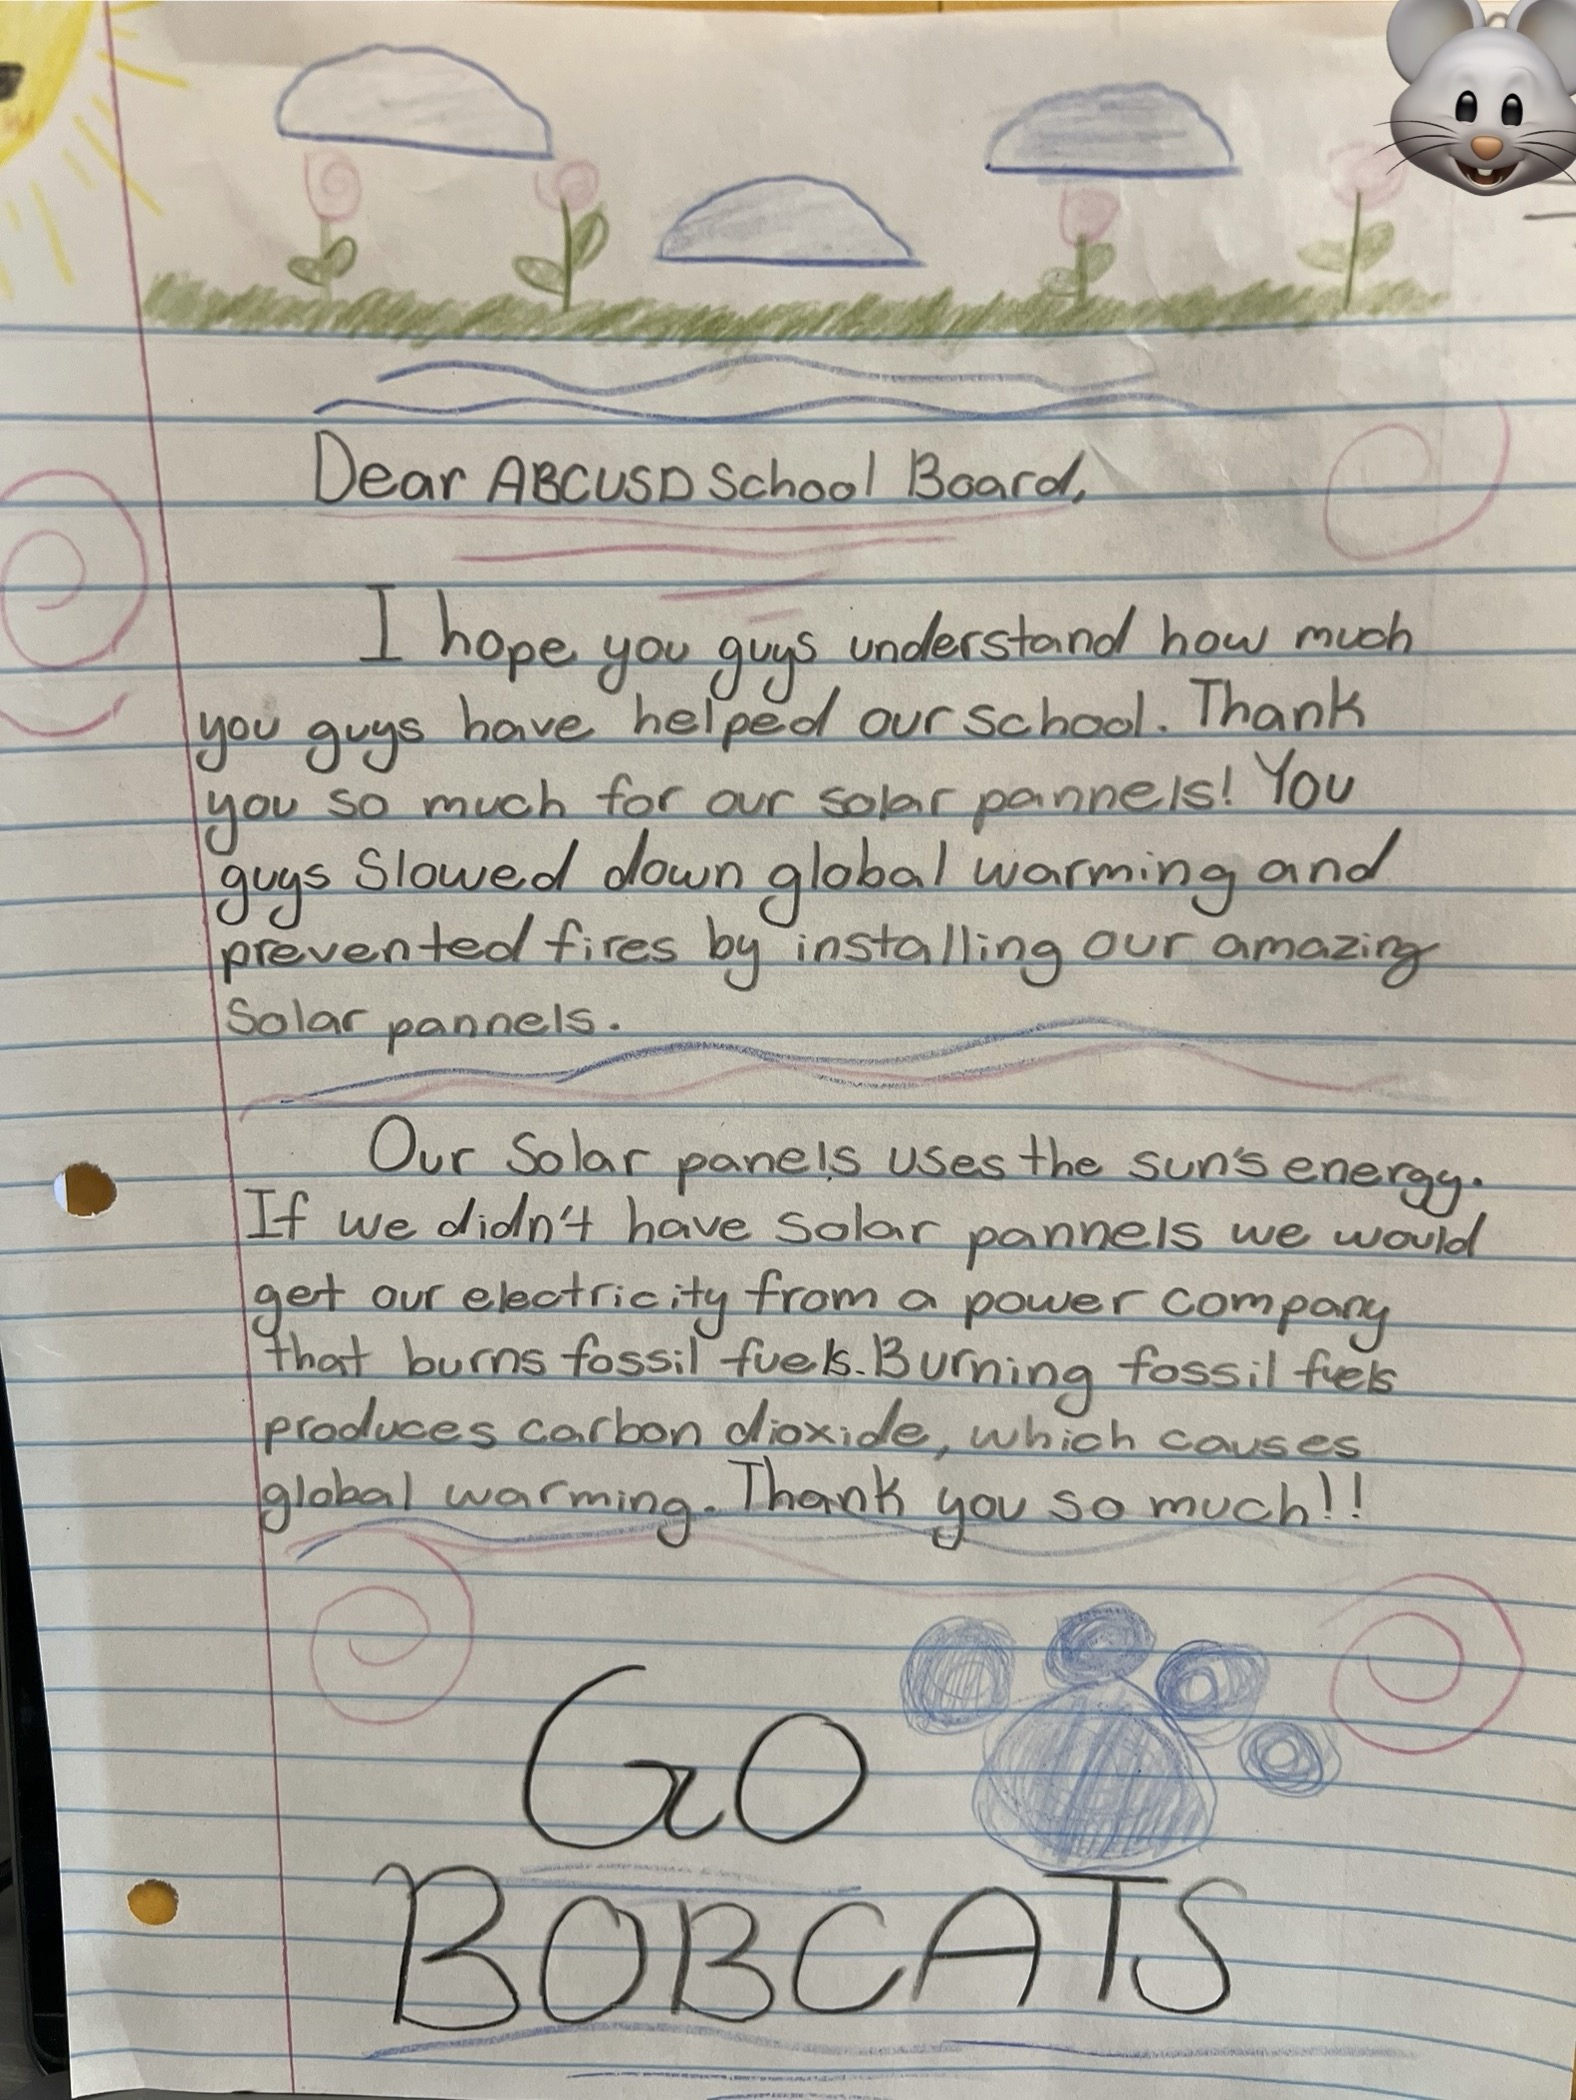 Dear ABCUSD School Board,
I hope you guys understand how much
you guys have helped our school. Thank
you so much for our solar pannels! You
guys slowed down global warming and
prevented fires by installing our amazing
solar pannels.
Our solar panels uses the sun's energy.
If we didn't have solar pannels we would
get our electricity from a power company
that burns fossil fuels. Burning fossil fuels
produces carbon dioxide, which causes
global warming. Thank you so much!!
GO
BOBCATS